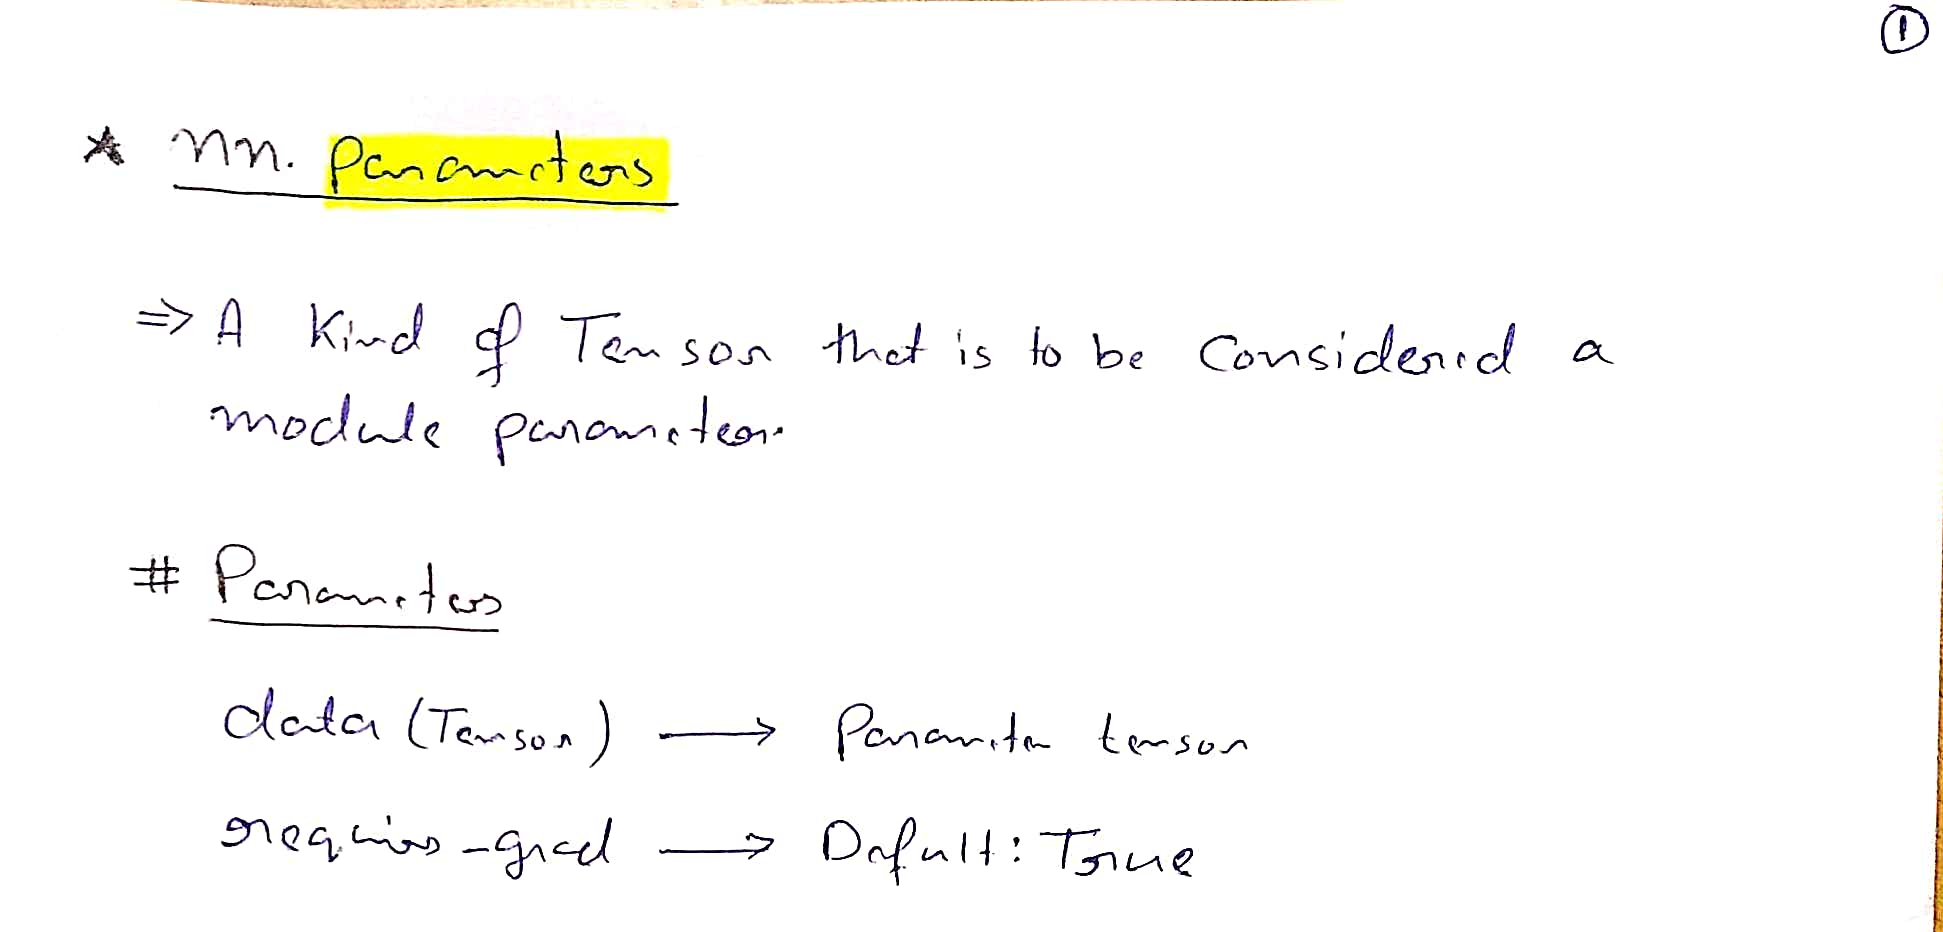 ①
* nn. Parameters
=> A Kind of Tensor that is to be Considered a
module parameter.
# Parameters
data (Tensor) → Parameter tensor
requires_grad → Defult: True